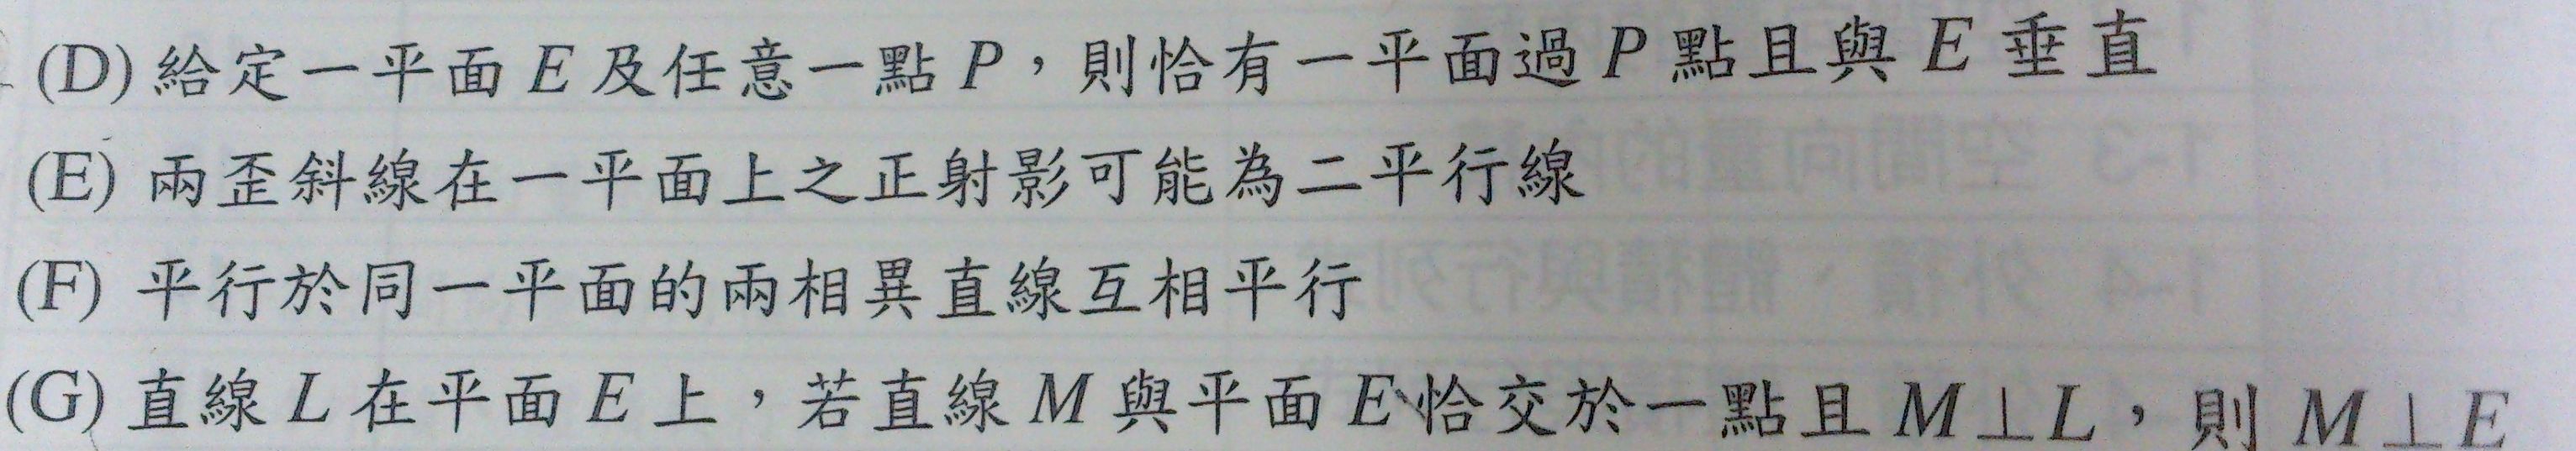 (D) 給定一平面 E 及任意一點 P，則恰有一平面過 P 點且與 E 垂直
(E) 兩歪斜線在一平面上之正射影可能為二平行線
(F) 平行於同一平面的兩相異直線互相平行
(G) 直線 L 在平面 E 上，若直線 M 與平面 E 恰交於一點且 M⊥L，則 M⊥E